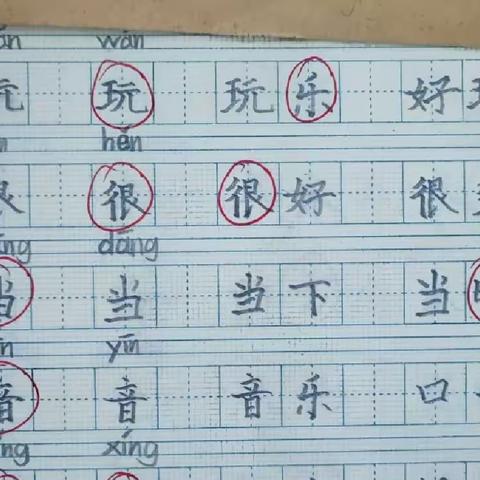 wán
玩 玩 玩乐 好
hěn
很 很好 很
dāng
当 当 当下 当
yīn
音 音 音乐 口
xíng